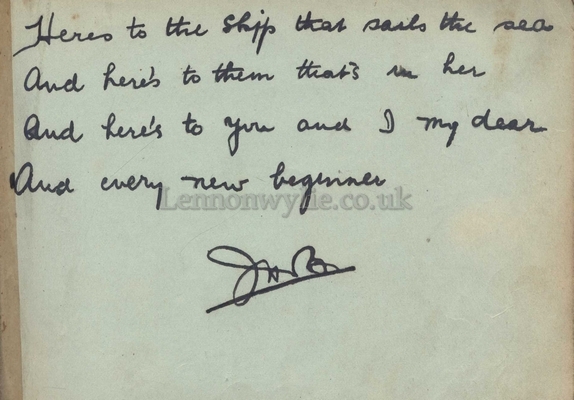 Heres to the ship that sails the sea
And here's to them that's in her
And here's to you and I my dear
And every new beginner
Lennonwylie.co.uk